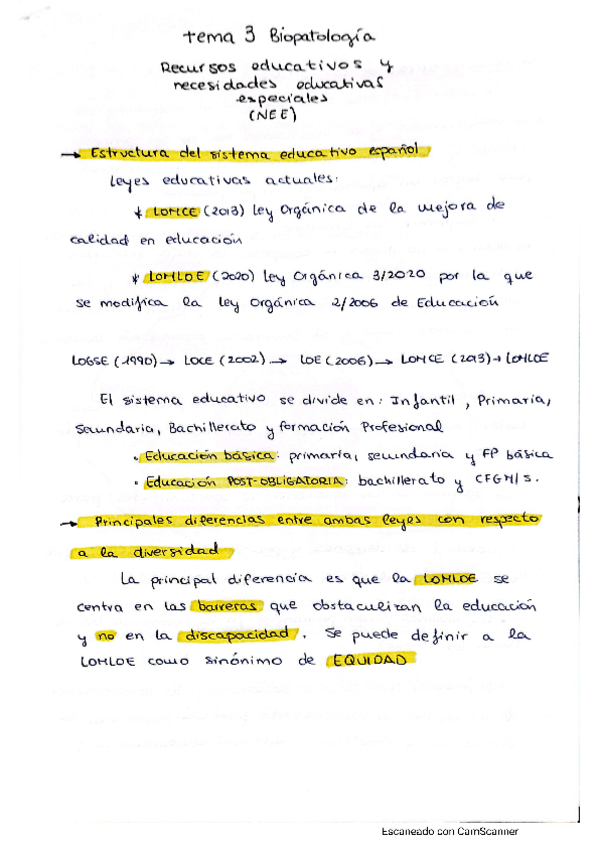 tema 3 Biopatología
Recursos educativos y
necesidades educativas
especiales
(NEE)
→ Estructura del sistema educativo español
Leyes educativas actuales:
* LOMCE (2013) Ley Orgánica de la mejora de
calidad en educación
* LOMLOE (2020) Ley Orgánica 3/2020 por la que
se modifica la Ley Orgánica 2/2006 de Educación
LOGSE (1990) → LOCE (2002) → LOE (2006) → LOMCE (2013) → LOMLOE
El sistema educativo se divide en: Infantil, Primaria,
Secundaria, Bachillerato y formación Profesional
• Educación básica: primaria, secundaria y FP básica
• Educación POST-OBLIGATORIA: bachillerato y CFGM/S.
→ Principales diferencias entre ambas leyes con respecto
a la diversidad
La principal diferencia es que la LOMLOE se
centra en las barreras que obstaculizan la educación
y no en la discapacidad. Se puede definir a la
LOMLOE como sinónimo de EQUIDAD
Escaneado con CamScanner